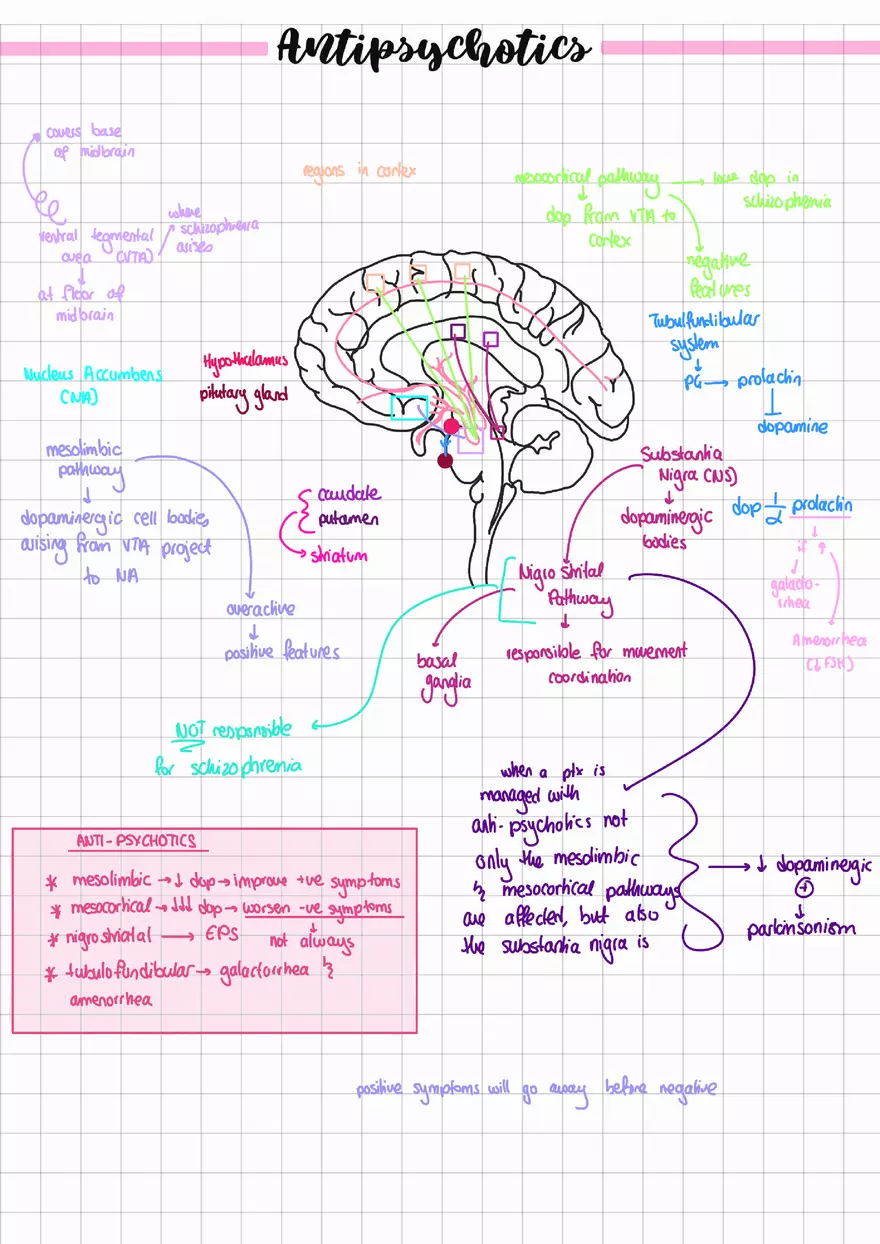 Antipsychotics
covers base
of midbrain
ventral tegmental
area (VTA)
where
schizophrenia
arises
at floor of
midbrain
regions in cortex
mesocortical pathway
low dop in
schizophrenia
dop from VTA to
cortex
negative
features
Tubulfundibular
system
PG → prolactin
dopamine
Nucleus Accumbens
(NA)
Hypothalamus
pitutary gland
mesolimbic
pathway
dopaminergic cell bodies
arising from VTA project
to NA
overactive
positive features
caudate
putamen
striatum
Substantia
Nigra (NS)
dopaminergic
bodies
dop 1/α prolactin
if ↑
galacto-
rrhea
Amenorrhea
(↓FSH)
Nigro strital
Pathway
basal
ganglia
responsible for movement
coordination
NOT responsible
for schizophrenia
when a ptx is
managed with
anti-psychotics not
only the mesolimbic
& mesocortical pathways
are affected, but also
the substantia nigra is
→ ↓ dopaminergic
+
parkinsonism
ANTI-PSYCHOTICS
* mesolimbic → ↓ dop → improve +ve symptoms
* mesocortical → ↓↓↓ dop → worsen -ve symptoms
* nigrostriatal → EPS
not always
* tubulofundibular → galactorrhea &
amenorrhea
positive symptoms will go away before negative